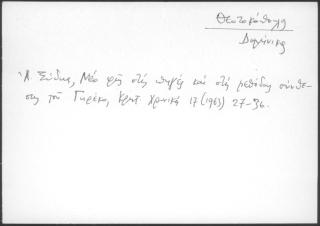 Θεοτοκόπουλο
Δομήνικο
Ἀ. Ξύδης, Νέο φῶς στίς πηγές καί στή μέθοδο σύνθε-
σης τοῦ Γκρέκο, Κρητ. Χρονικά 17 (1963) 27-36.